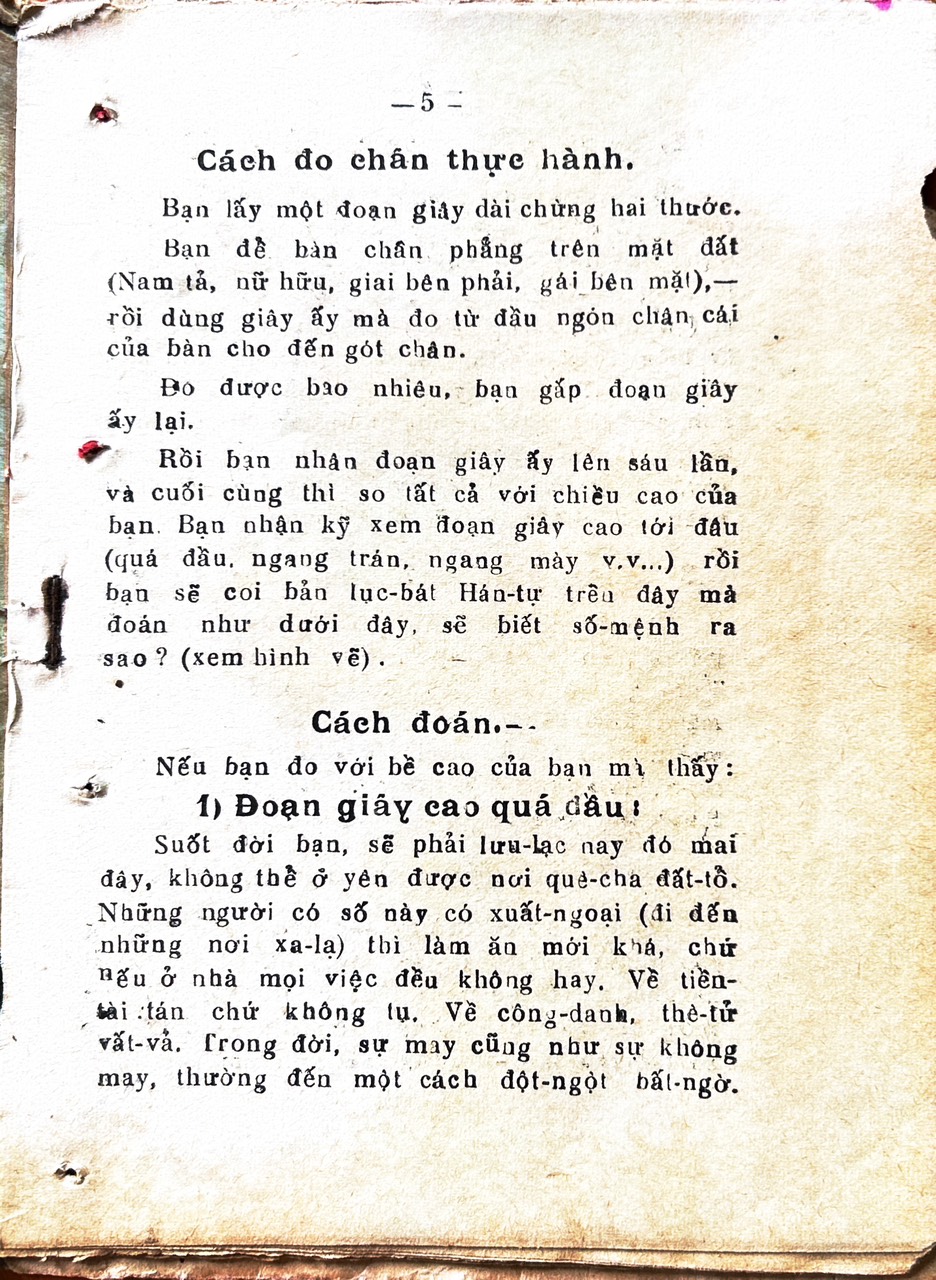 — 5 –
Cách đo chân thực hành.
Bạn lấy một đoạn giây dài chừng hai thước.
Bạn để bàn chân phẳng trên mặt đất
(Nam tả, nữ hữu, giai bên phải, gái bên mặt),—
rồi dùng giây ấy mà đo từ đầu ngón chân cái
của bàn cho đến gót chân.
Đo được bao nhiêu, bạn gấp đoạn giây
ấy lại.
Rồi bạn nhân đoạn giây ấy lên sáu lần,
và cuối cùng thì so tất cả với chiều cao của
bạn. Bạn nhận kỹ xem đoạn giây cao tới đâu
(quá đầu, ngang trán, ngang mày v.v...) rồi
bạn sẽ coi bản lục-bát Hán-tự trên đây mà
đoán như dưới đây, sẽ biết số-mệnh ra
sao? (xem hình vẽ).
Cách đoán.—
Nếu bạn đo với bề cao của bạn mà thấy:
1) Đoạn giây cao quá đầu:
Suốt đời bạn, sẽ phải lưu-lạc nay đó mai
đây, không thể ở yên được nơi quê-cha đất-tổ.
Những người có số này có xuất-ngoại (đi đến
những nơi xa-lạ) thì làm ăn mới khá, chứ
nếu ở nhà mọi việc đều không hay. Về tiền-
tài tán chứ không tụ. Về công-danh, thê-tử
vất-vả. Trong đời, sự may cũng như sự không
may, thường đến một cách đột-ngột bất-ngờ.